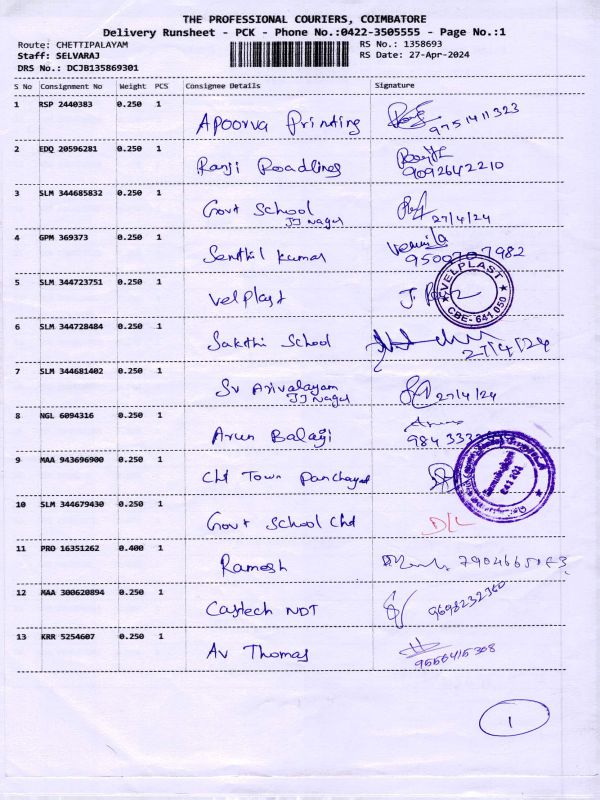 THE PROFESSIONAL COURIERS, COIMBATORE
Delivery Runsheet - PCK - Phone No.:0422-3505555 - Page No.:1
Route: CHETTIPALAYAM RS No.: 1358693
Staff: SELVARAJ RS Date: 27-Apr-2024
DRS No.: DCJB135869301
S No Consignment No Weight PCS Consignee Details Signature
1 RSP 2440383 0.250 1 Apoorva Printing 9751411323
2 EDQ 20596281 0.250 1 Ranji Roadlines 9092642210
3 SLM 344685832 0.250 1 Govt School
JJ Nagar 27/4/24
4 GPM 369373 0.250 1 Senthil kumar
5 SLM 344723751 0.250 1 Velplast
VELPLAST
CBE- 641 050
6 SLM 344728484 0.250 1 Sakthi School 27/4/24
7 SLM 344681402 0.250 1 Sv Arivalayam
JJ Nagar 27/4/24
8 NGL 6094316 0.250 1 Arun Balaji
9 MAA 943696900 0.250 1 Cht Town Panchayat
10 SLM 344679430 0.250 1 Govt School Cht D/L
11 PRO 16351262 0.400 1 Ramesh
12 MAA 300620894 0.250 1 Castech NDT 9698232360
13 KRR 5254607 0.250 1 Av Thomas
1